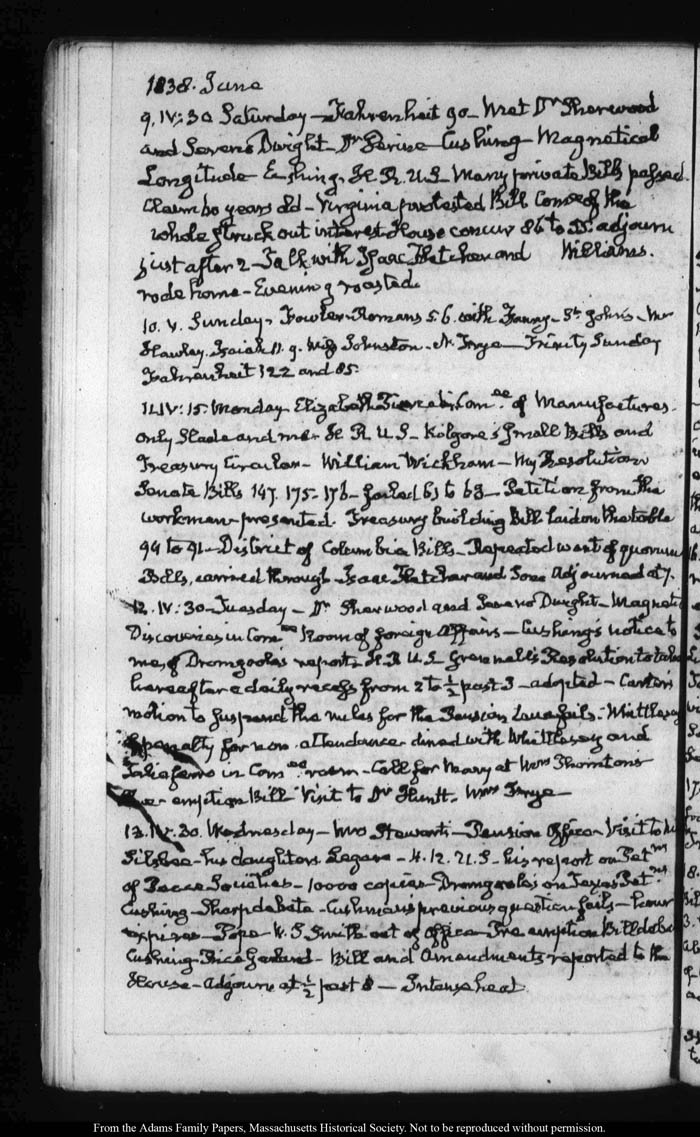 1838. June
9. IV:30 Saturday — Fahrenheit 90 — Met Dr Sherwood
and Sereno Dwight — Dr Cushing — Magnetical
Longitude Cushing. H. R. U.S. Many private Bills passed.
Claim 60 years old — Virginia protested Bill Comee of the
whole struck out interest House concur 86 to 51. adjourn
just after 2 — Talk with Isaac Fletcher and Williams.
rode home — Evening roasted.
10. V. Sunday. Fowler. Romans 5. 6. with Fanny — St. John's — Mr
Hawley. Isaiah 11. 9. Miss Johnston. N. Frye — Trinity Sunday
Fahrenheit 122 and 85.
11. IV:15. Monday. Elizabeth Com.ee of Manufactures.
only Slade and me. H. R. U.S — Kilgore's small Bills and
Treasury Circular — William Wickham — My Resolution
Senate Bills 147. 175 — 176 — failed 63 to 68 — Petition from the
workmen — presented. Treasury building Bill laid on the table
94 to 91 — District of Columbia Bills — Repeated want of quorum
Bills, carried through — Isaac Fletcher and Son Adjourned at 7.
12. IV:30 — Tuesday — Dr Sherwood and Sereno Dwight — Magnetic
Discoveries in Comee Room of foreign Affairs — Cushing's notice to
me, of Dromgoole's report. H. R U.S Grennell's Resolution to take
hereafter a daily recess from 2 to ½ past 3 — adopted — Carter's
motion to suspend the rules for the Pension Laws fails. Whittlesey
penalty for non attendance. dined with Whittlesey and
Taliaferro in Comee room — Call for Mary at Mrs Thornton's
Pre-emption Bill Visit to Dr Huntt. Mrs Frye —
13. IV.30. Wednesday — Mrs Stewart — Pension Office — Visit to Mr
Silsbee — his daughters Legare — H. R. U.S — his report on Petns
of Peace Societies — 10000 copies — Dromgoole's on Texas Petns
Cushing — Sharp debate — Cushman's previous question fails — hour
expires — Pope — H. S Smith out of Office — Pre emption Bill debate
Cushing — Rice Garland — Bill and Amendments reported to the
House — Adjourn at ½ past 8 — Intense heat.
From the Adams Family Papers, Massachusetts Historical Society. Not to be reproduced without permission.